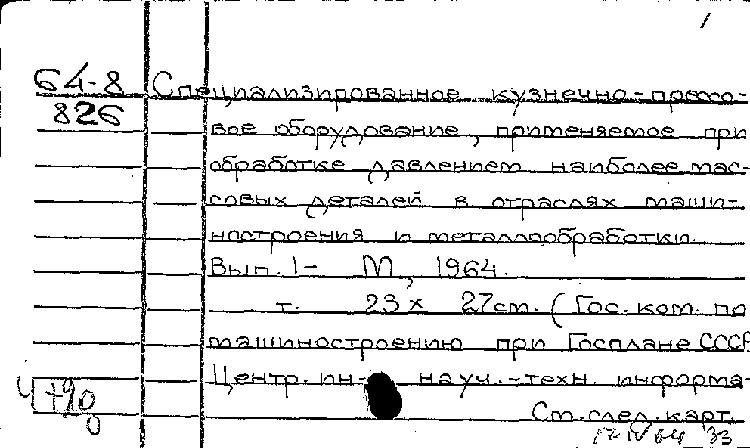 1
64-8 Специализированное кузнечно-прессо-
826 вое оборудование, применяемое при
обработке давлением наиболее мас-
совых деталей в отраслях маши-
ностроения и металлообработки.
Вып. 1- М, 1964.
т. 23 х 27 см. (Гос. ком. по
машиностроению при Госплане СССР
Центр. ин- науч.-техн. информа-
См. след. карт.